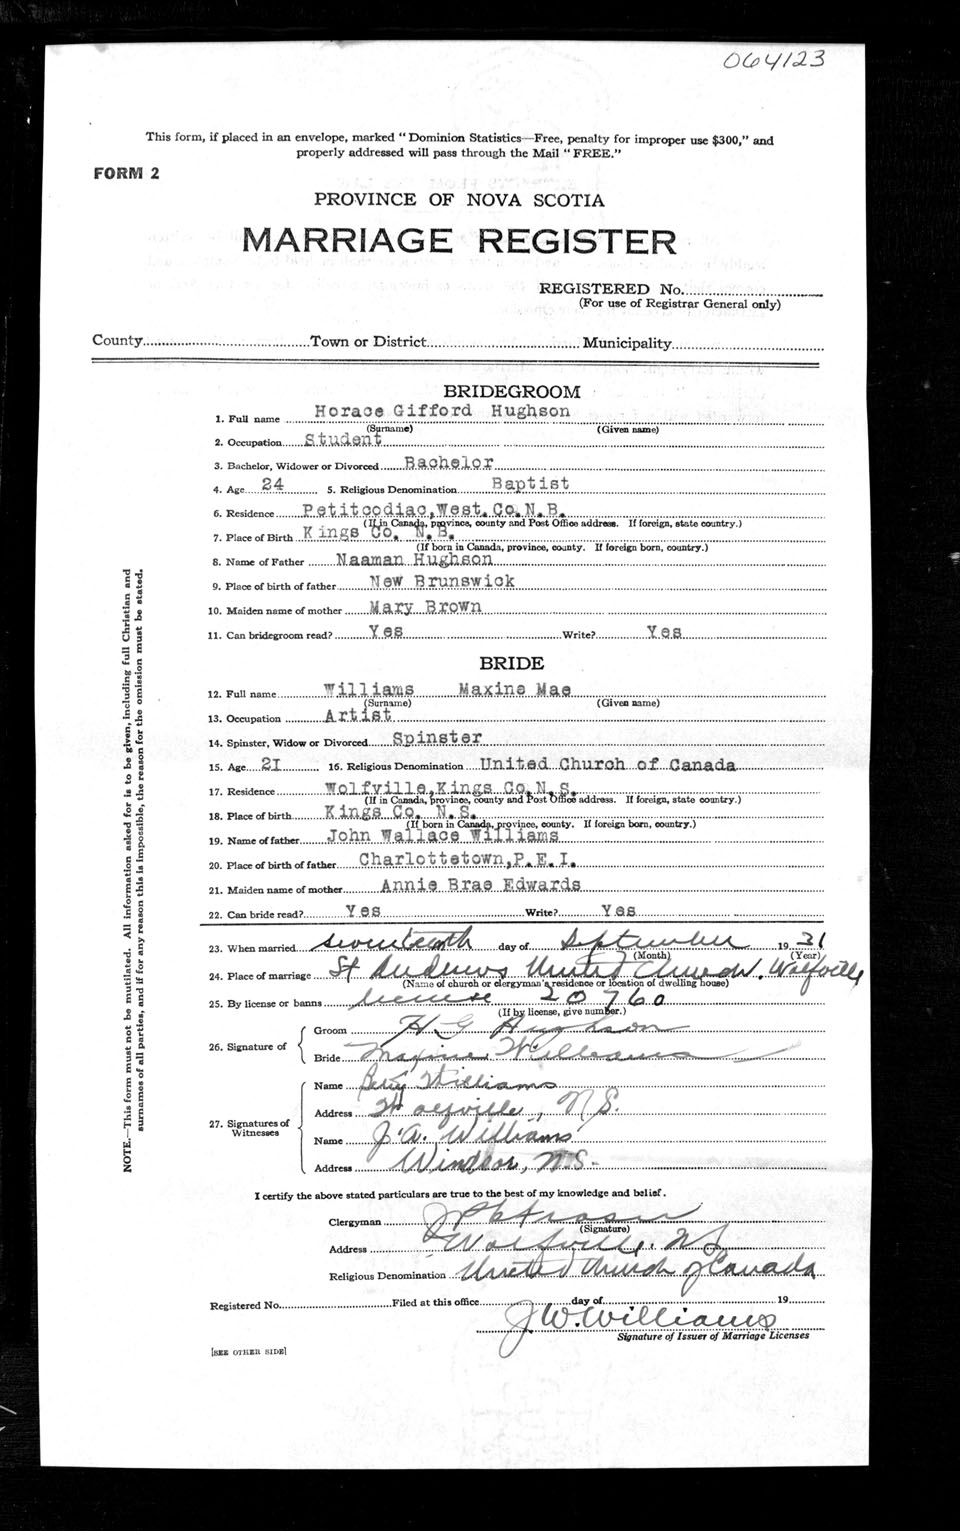 064123
This form, if placed in an envelope, marked "Dominion Statistics—Free, penalty for improper use $300," and
properly addressed will pass through the Mail "FREE."
FORM 2
PROVINCE OF NOVA SCOTIA
MARRIAGE REGISTER
REGISTERED No.
(For use of Registrar General only)
County Town or District Municipality
BRIDEGROOM
1. Full name Horace Gifford Hughson
(Surname) (Given name)
2. Occupation Student
3. Bachelor, Widower or Divorced Bachelor
4. Age 24 5. Religious Denomination Baptist
6. Residence Petitcodiac, West. Co. N.B.
(If in Canada, province, county and Post Office address. If foreign, state country.)
7. Place of Birth Kings Co. N.B.
(If born in Canada, province, county. If foreign born, country.)
8. Name of Father Naaman Hughson
9. Place of birth of father New Brunswick
10. Maiden name of mother Mary Brown
11. Can bridegroom read? Yes Write? Yes
BRIDE
12. Full name Williams Maxine Mae
(Surname) (Given name)
13. Occupation Artist
14. Spinster, Widow or Divorced Spinster
15. Age 21 16. Religious Denomination United Church of Canada
17. Residence Wolfville, Kings Co. N.S.
(If in Canada, province, county and Post Office address. If foreign, state country.)
18. Place of birth Kings Co. N.S.
(If born in Canada, province, county. If foreign born, country.)
19. Name of father John Wallace Williams
20. Place of birth of father Charlottetown, P.E.I.
21. Maiden name of mother Annie Brae Edwards
22. Can bride read? Yes Write? Yes
23. When married seventeenth day of September 19 31
(Month) (Year)
24. Place of marriage St Andrews United Church, Wolfville
(Name of church or clergyman's residence or location of dwelling house)
25. By license or banns license 20760
(If by license, give number.)
26. Signature of
Groom H G Hughson
Bride Maxine Williams
27. Signatures of Witnesses
Name Betty Williams
Address Wolfville, N.S.
Name J. A. Williams
Address Windsor, N.S.
I certify the above stated particulars are true to the best of my knowledge and belief.
Clergyman Fraser
(Signature)
Address Wolfville, N.S.
Religious Denomination United Church of Canada
Registered No. Filed at this office day of 19
J. W. Williams
Signature of Issuer of Marriage Licenses
[SEE OTHER SIDE]
NOTE.—This form must not be mutilated. All information asked for is to be given, including full Christian and
surnames of all parties, and if for any reason this is impossible, the reason for the omission must be stated.